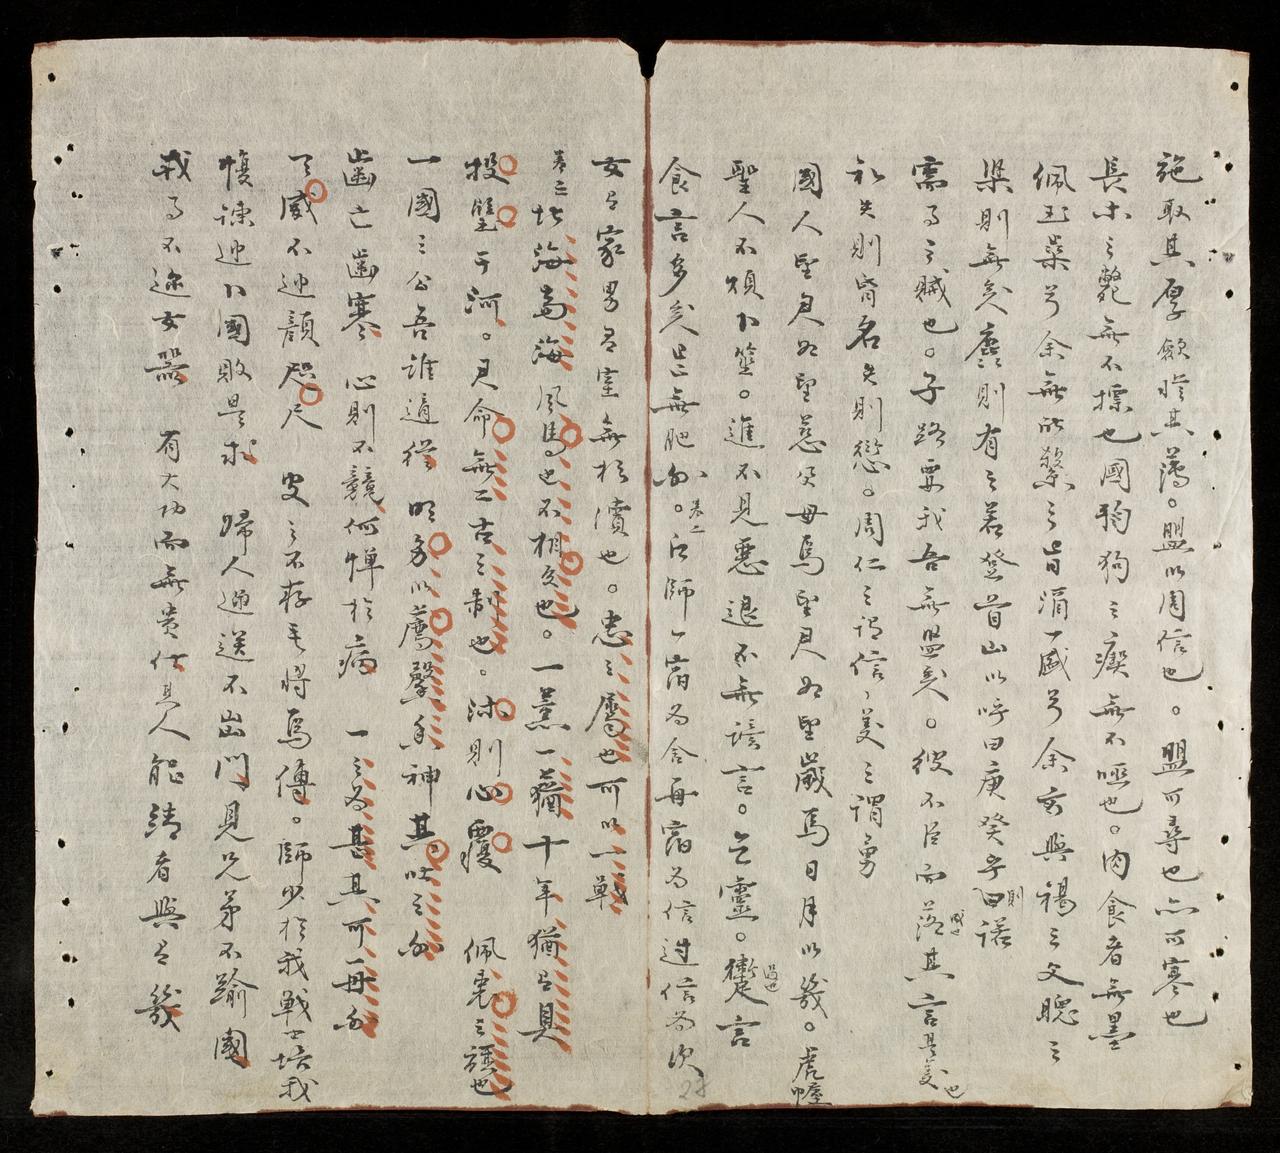 施取其厚歛從其薄。盟以周信也。盟可尋也亦可寒也
長木之斃無不摽也國狗之瘈無不噬也。肉食者無墨
佩玉蘂兮余無所繫之旨酒一盛兮余與褐之父睨之
粱則無矣麤則有之若登首山以呼曰庚癸乎則曰諾
需事之賊也。子路要我吾無盟矣。彼不臣而濟其言是義也
礼失則昏名失則愆。周仁之謂信、義之謂勇
國人望君如望慈父母焉望君如望歲焉日月以幾。
聖人不煩卜筮。進不見惡退不無謗言。亡靈。言
食言多矣能無肥乎。卷二凡師一宿為舍再宿為信過信為次
女有家男有室無相瀆也。忠之屬也可以一戰
卷三北海南海風馬牛不相及也。一薰一蕕十年猶有臭
投璧于河。君命無二古之制也。沐則心覆 佩衷之旗也
一國三公吾誰適從 明德以薦馨香神其吐之乎
唇亡齒寒 心則不競何憚於病 一之為甚其可再乎
天威不違顏咫尺 皮之不存毛將焉傅。師少於我戰士倍我
愎諫違卜固敗是求 婦人迎送不出門見兄弟不踰國
戎事不邇女器 有大功而無貴仕其人能靖者與有幾